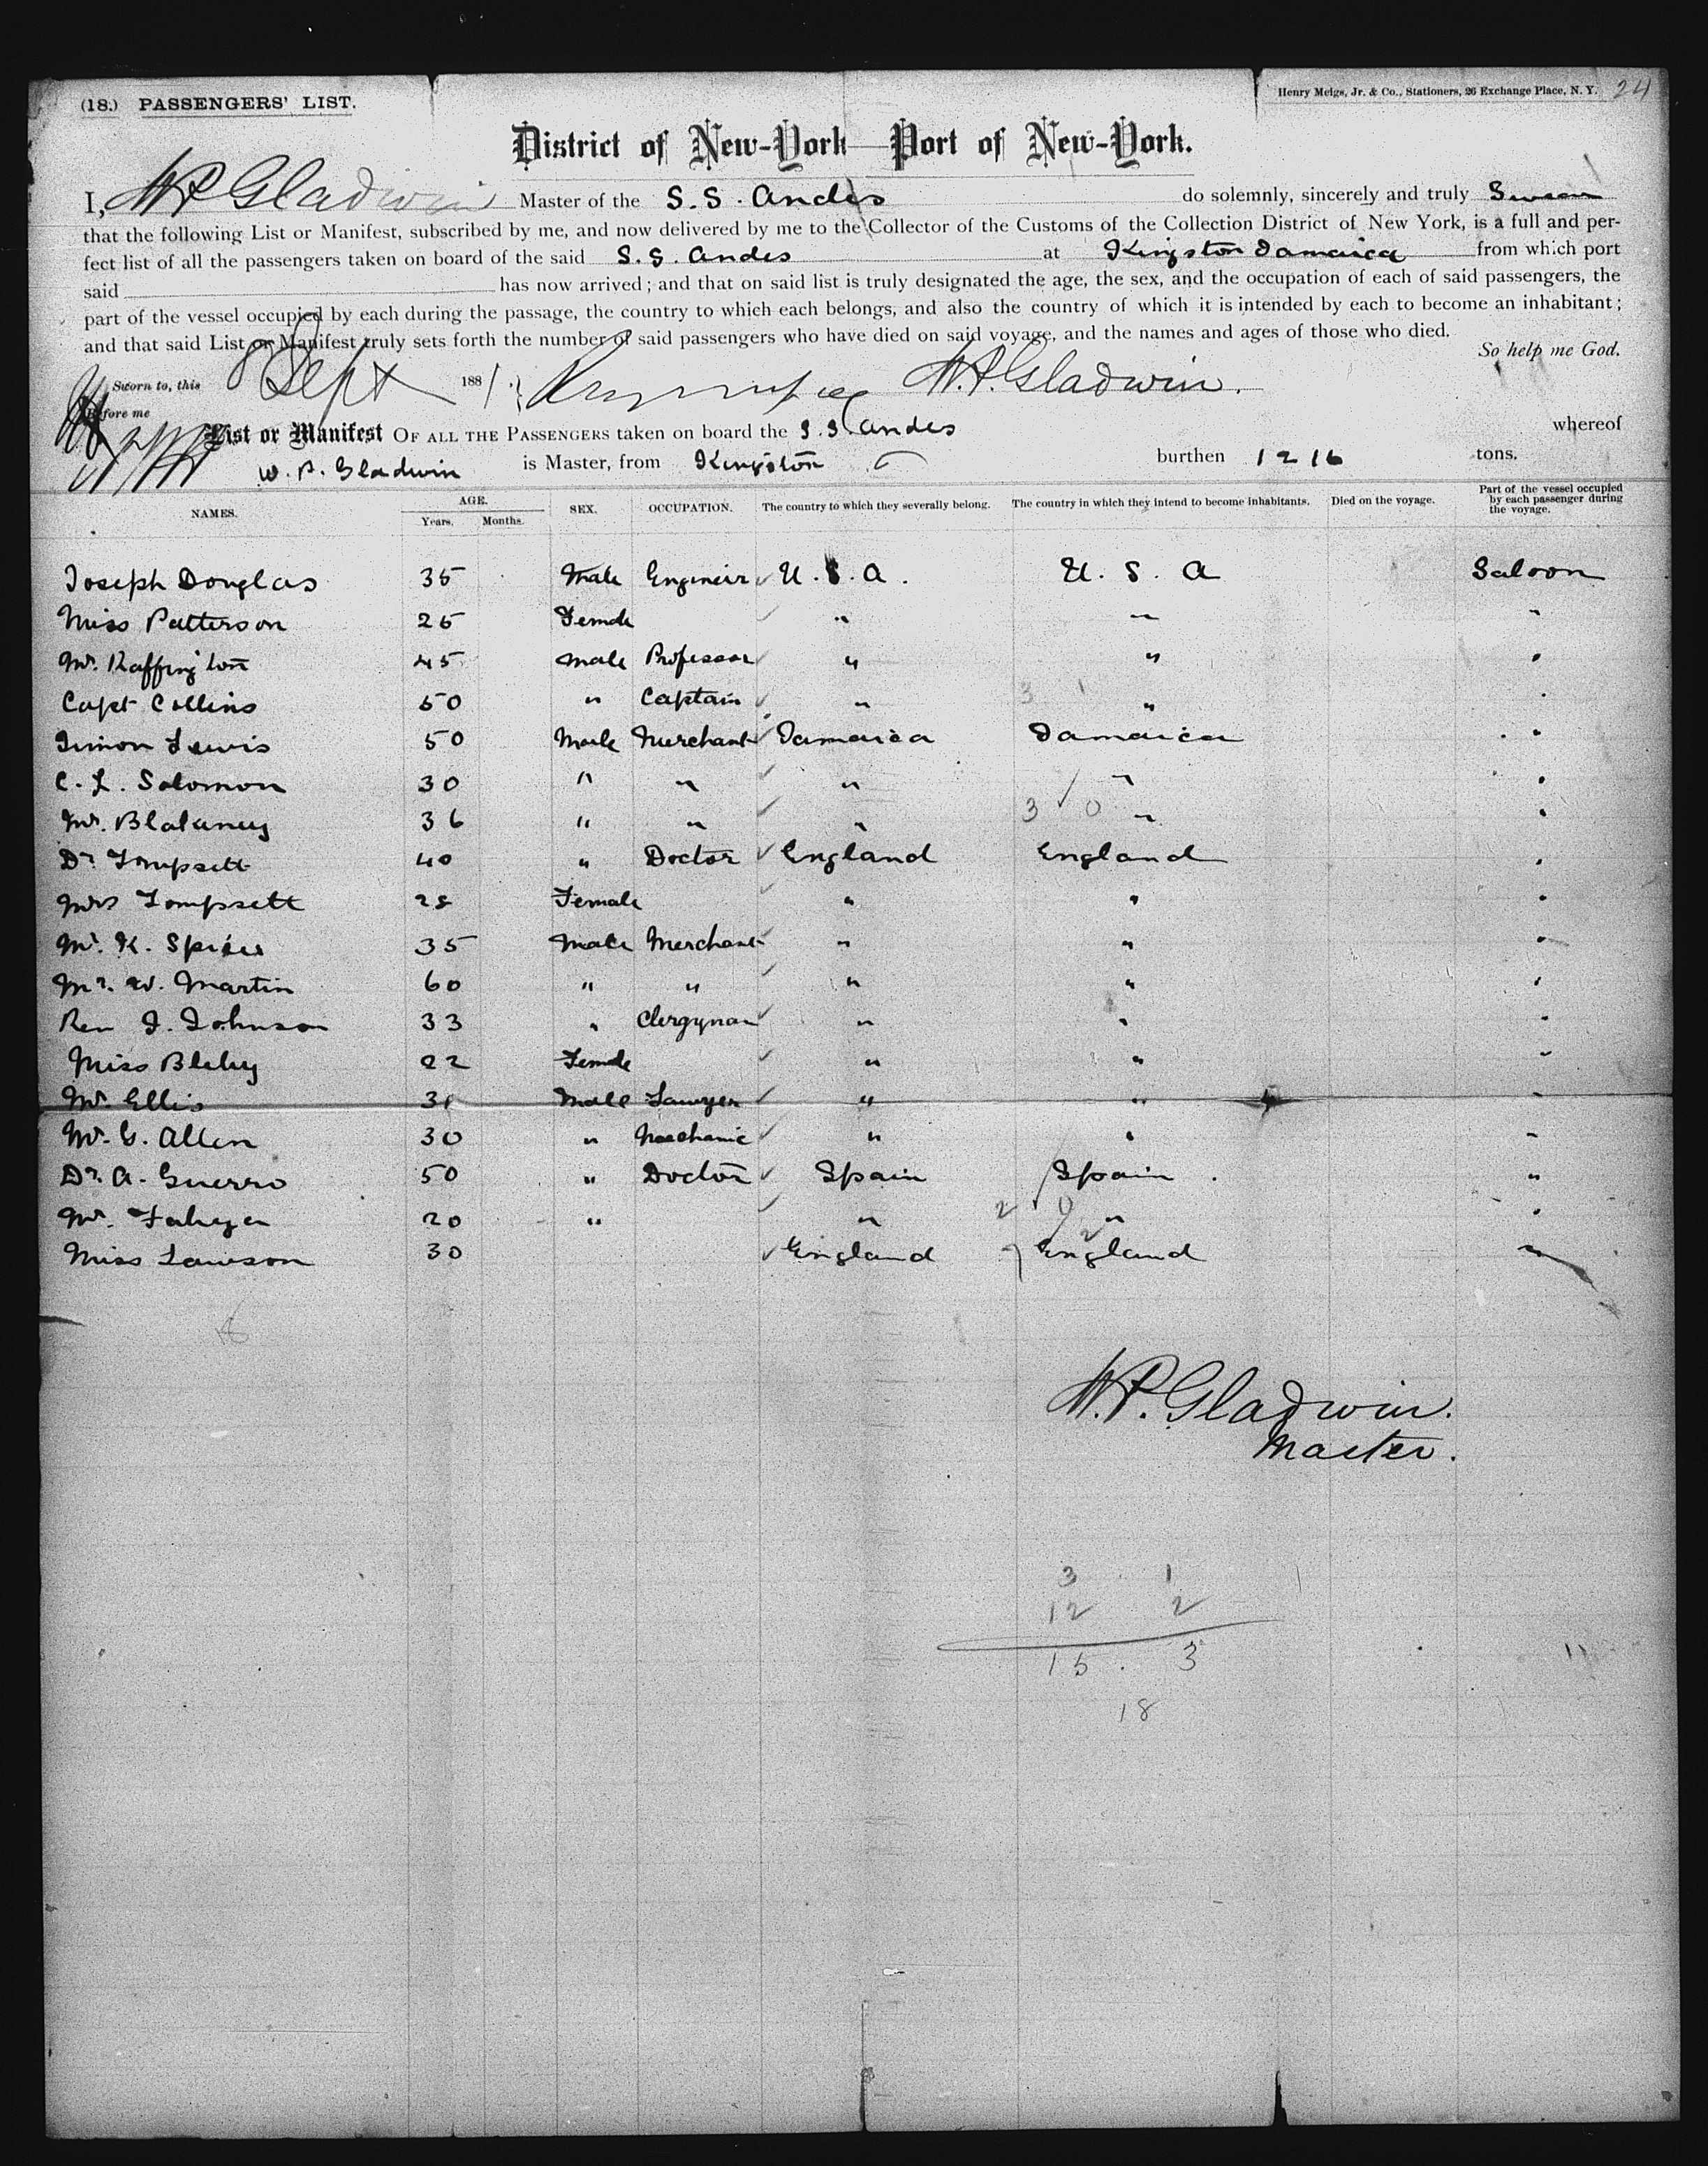 (18.) PASSENGERS' LIST.
Henry Meigs, Jr. & Co., Stationers, 26 Exchange Place, N. Y. 24
District of New-York Port of New-York.
I, W P Gladwin Master of the S.S. Andes do solemnly, sincerely and truly Swear
that the following List or Manifest, subscribed by me, and now delivered by me to the Collector of the Customs of the Collection District of New York, is a full and per-
fect list of all the passengers taken on board of the said S.S. Andes at Kingston Jamaica from which port
said has now arrived; and that on said list is truly designated the age, the sex, and the occupation of each of said passengers, the
part of the vessel occupied by each during the passage, the country to which each belongs, and also the country of which it is intended by each to become an inhabitant;
and that said List or Manifest truly sets forth the number of said passengers who have died on said voyage, and the names and ages of those who died.
So help me God.
Sworn to, this 8 Sept 1881 W.P. Gladwin.
Before me
List or Manifest OF ALL THE PASSENGERS taken on board the S.S. Andes whereof
W. P. Gladwin is Master, from Kingston burthen 1216 tons.
NAMES. AGE. Years. Months. SEX. OCCUPATION. The country to which they severally belong. The country in which they intend to become inhabitants. Died on the voyage. Part of the vessel occupied by each passenger during the voyage.
Joseph Douglas 35 Male Engineer U.S.A. U.S.A Saloon
Miss Patterson 25 Female " " "
Mr. Raffington 45 Male Professor " " "
Capt Collins 50 " Captain " " "
Simon Lewis 50 Male Merchant Jamaica Jamaica "
C. L. Solomon 30 " " " " "
Mr. Blakeney 36 " " " " "
Dr Tompsett 40 " Doctor England England "
Mrs Tompsett 28 Female " " "
Mr. K. Spicer 35 Male Merchant " " "
Mr. W. Martin 60 " " " " "
Rev J. Johnson 33 " Clergyman " " "
Miss Bleby 22 Female " " "
Mr. Ellis 31 Male Lawyer " " "
Mr. G. Allen 30 " Mechanic " " "
Dr. A. Guerro 50 " Doctor Spain Spain "
Mr. 20 " " " "
Miss Lawson 30 England England "
W.P. Gladwin.
Master.
3 1
12 2
15 . 3
18